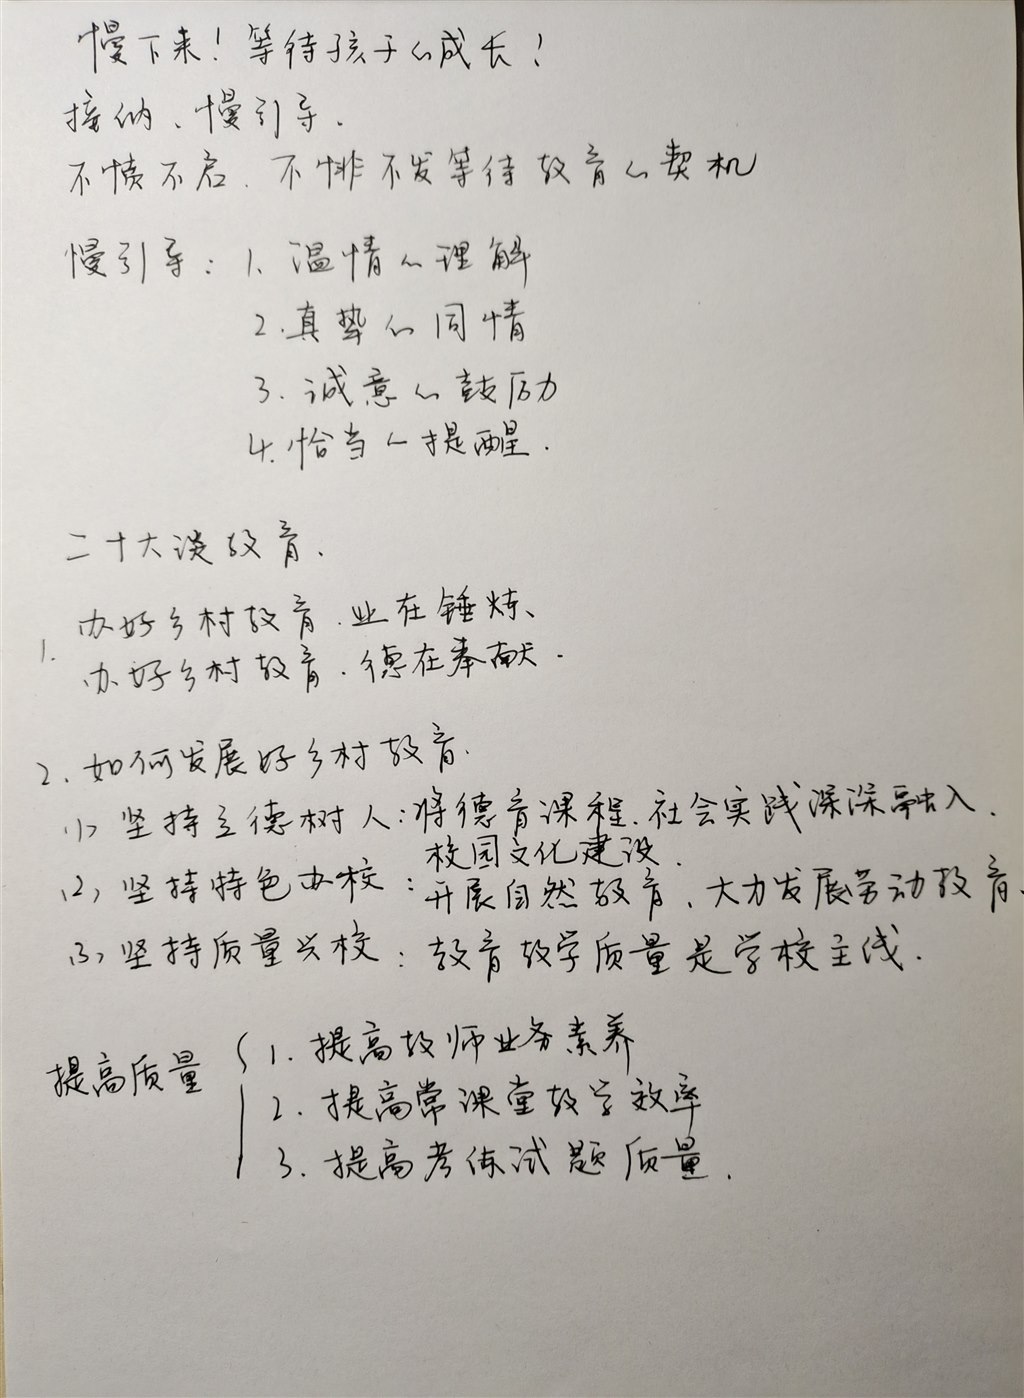 慢下来！等待孩子的成长！
接纳、慢引导.
不愤不启.不悱不发等待教育的契机
慢引导：1.温情的理解
2.真挚的同情
3.诚意的鼓励
4.恰当的提醒.
二十大谈教育.
1.办好乡村教育.业在锤炼、
办好乡村教育.德在奉献.
2.如何发展好乡村教育.
(1)坚持立德树人:将德育课程.社会实践深深融入.
校园文化建设.
(2)坚持特色办校:开展自然教育、大力发展劳动教育、
(3)坚持质量兴校:教育教学质量是学校主线.
提高质量{1.提高教师业务素养
2.提高常课堂教学效率
3.提高考练试题质量.